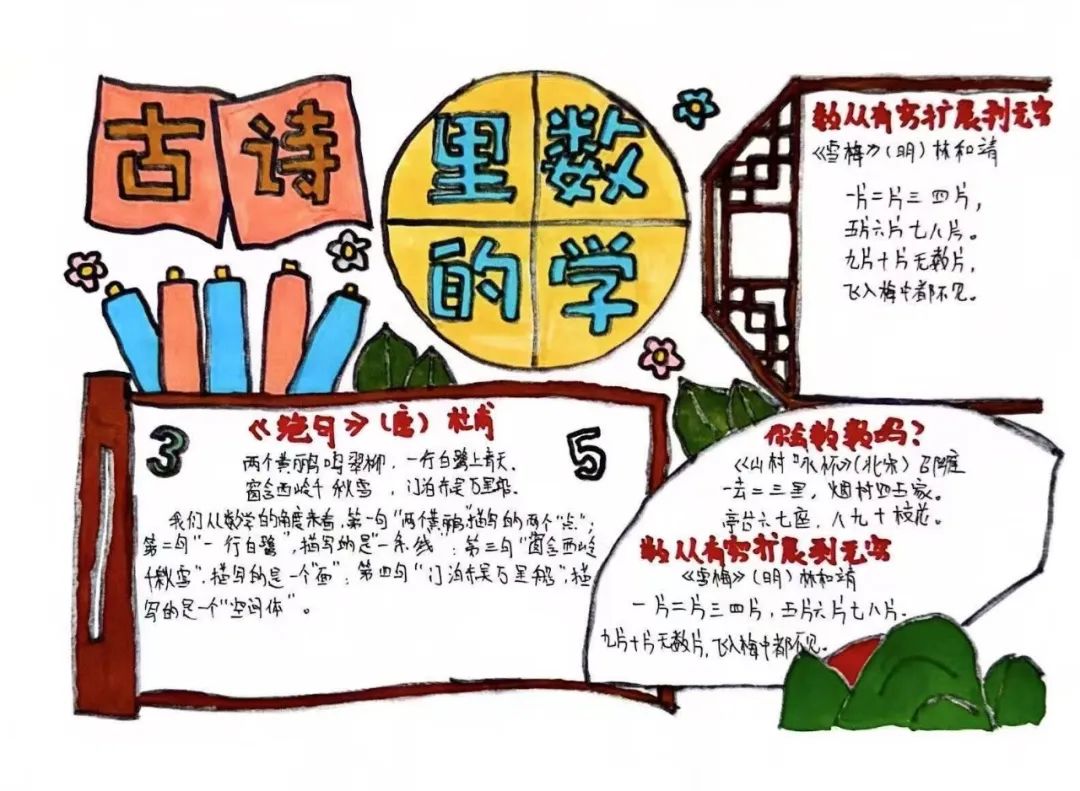 古诗
里数
的学
数从有穷扩展到无穷
《雪梅》(明)林和靖
一片二片三四片，
五片六片七八片。
九片十片无数片，
飞入梅中都不见。
3
《绝句》(唐)杜甫
5
两个黄鹂鸣翠柳，一行白鹭上青天.
窗含西岭千秋雪，门泊东吴万里船.
我们从数学的角度来看，第一句"两个黄鹂"描写的两个"点"；
第二句"一行白鹭"，描写的是"一条线"；第三句"窗含西岭
千秋雪"，描写的是一个"面"；第四句"门泊东吴万里船"，描
写的是一个"空间体"。
你会数数吗？
《山村咏怀》(北宋)邵雍
一去二三里，烟村四五家。
亭台六七座，八九十枝花。
数从有穷扩展到无穷
《雪梅》(明)林和靖
一片二片三四片，五片六片七八片.
九片十片无数片，飞入梅中都不见。